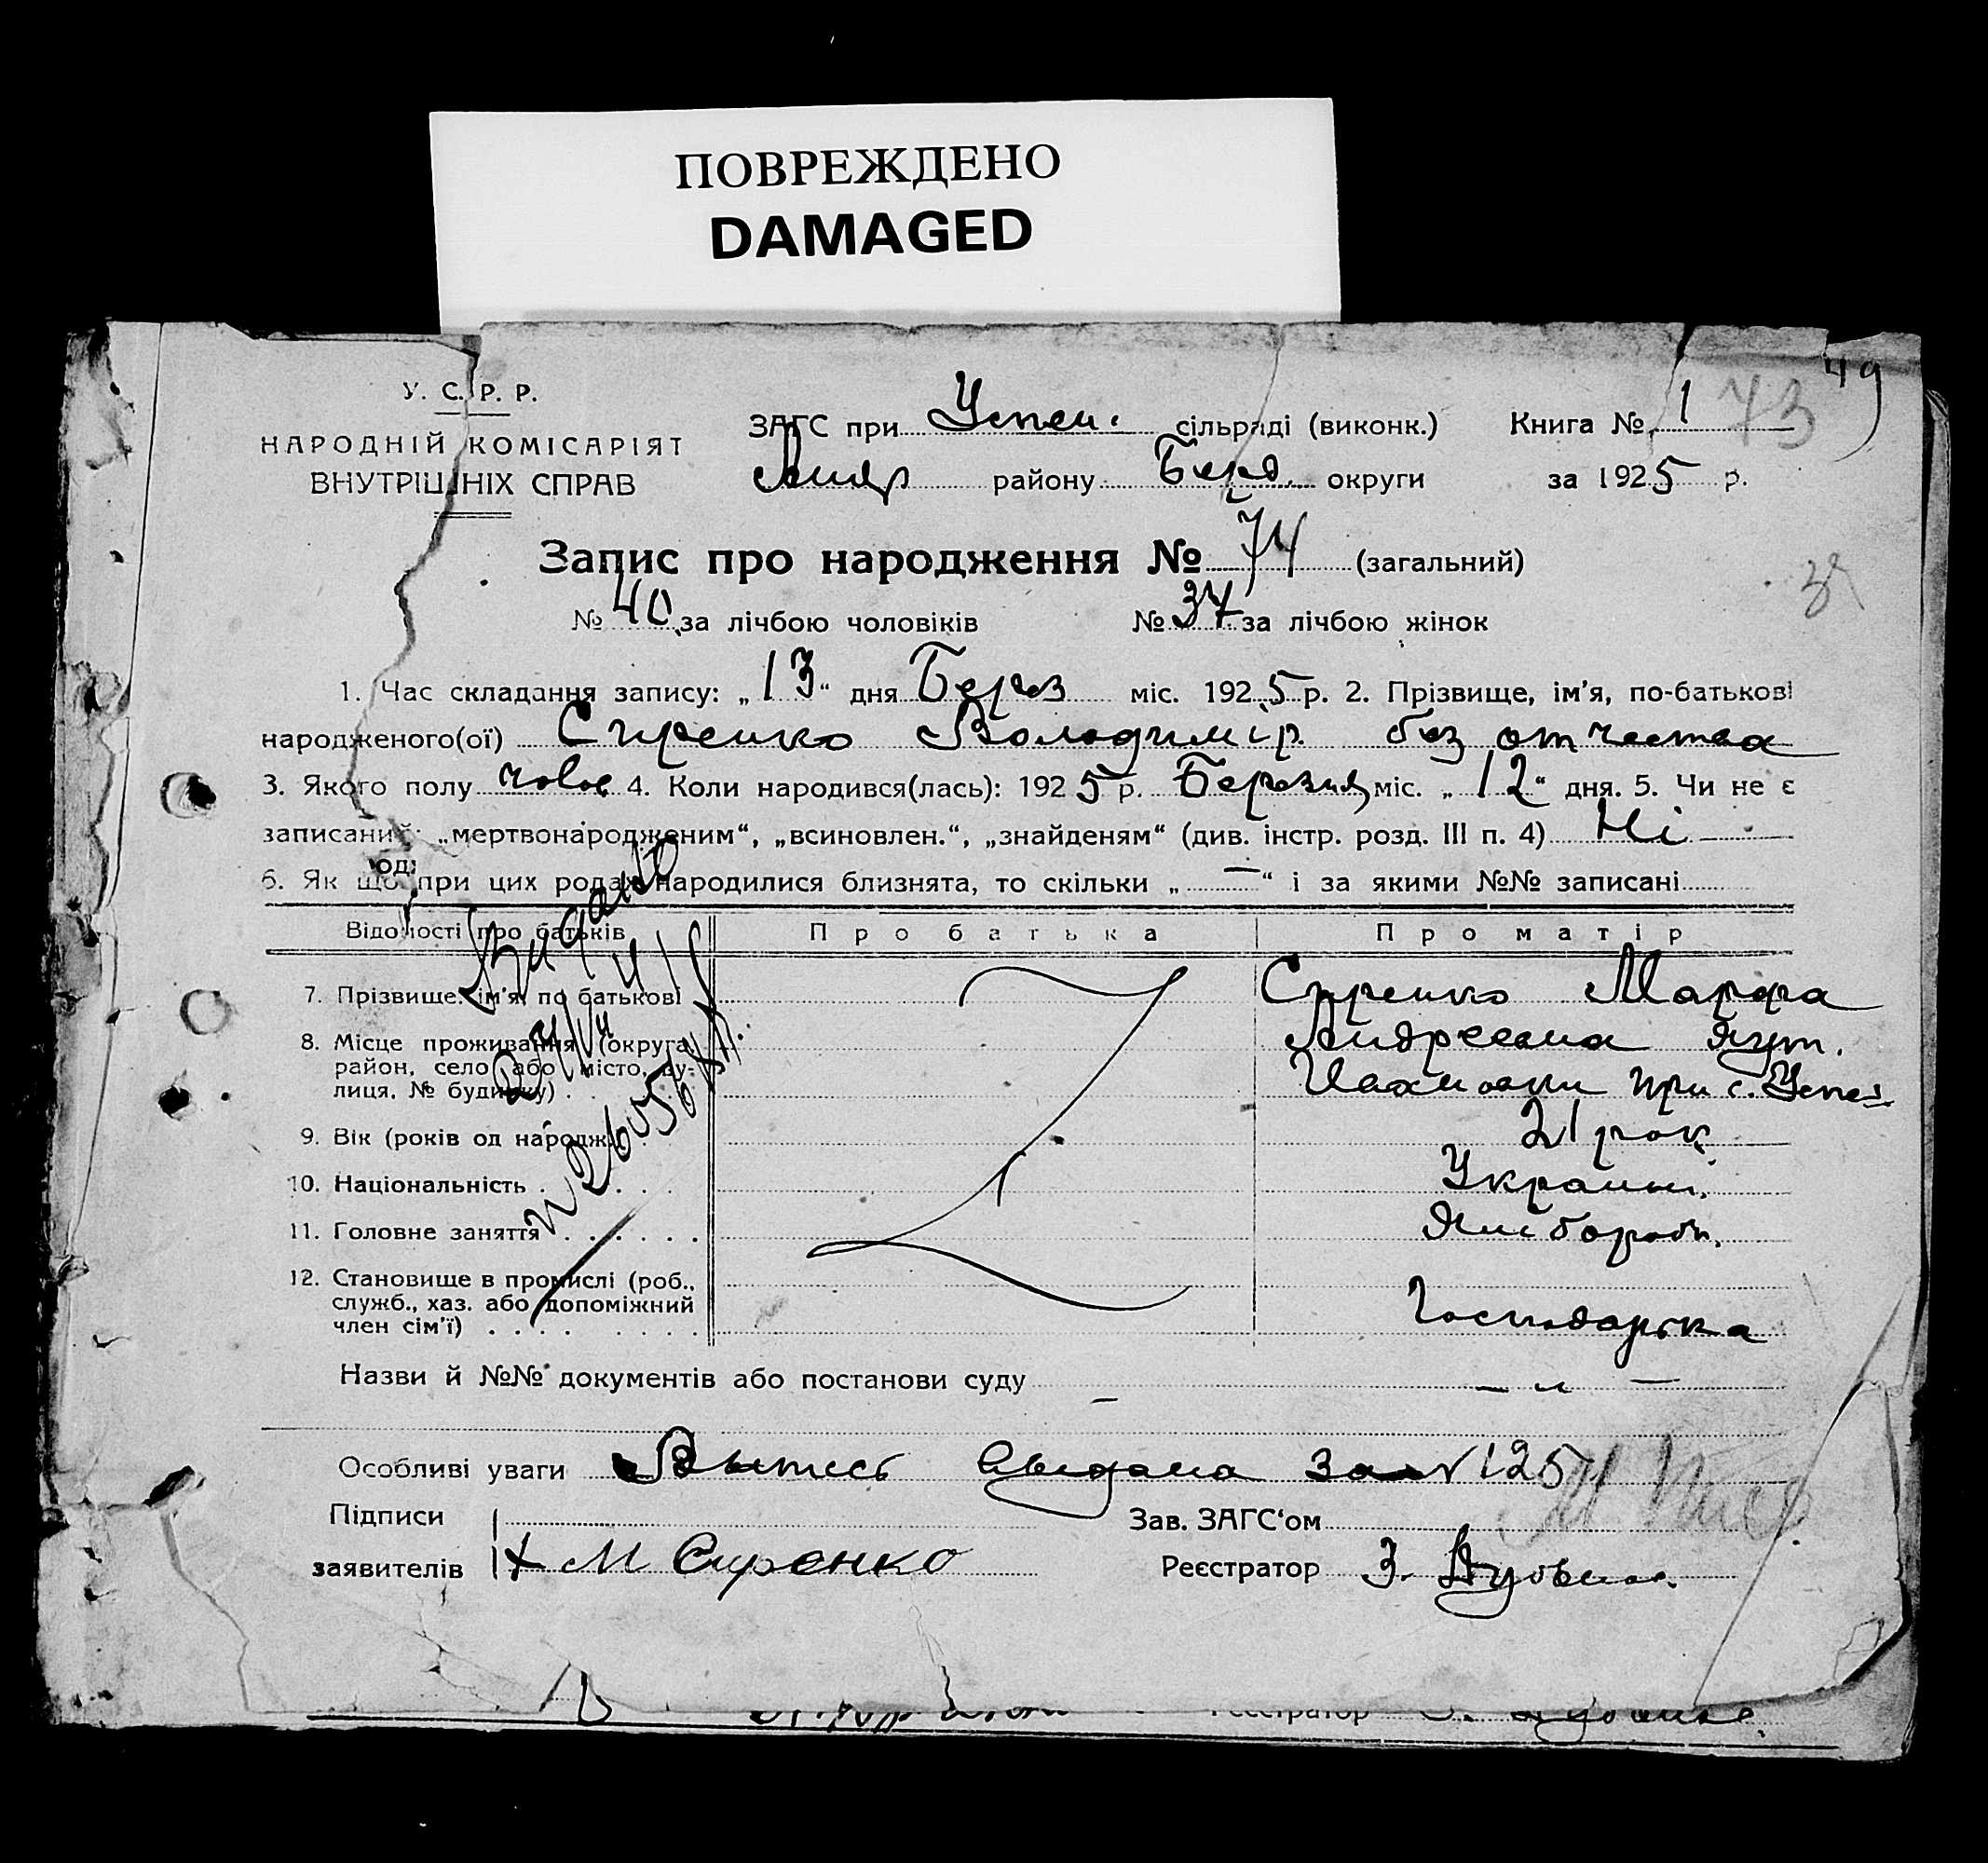 ПОВРЕЖДЕНО
DAMAGED
49
У. С. Р. Р.
НАРОДНІЙ КОМІСАРІЯТ
ВНУТРІШНІХ СПРАВ
ЗАГС при Успен. сільраді (виконк.) Книга № 1 73
району Берд. округи за 1925 р.
Запис про народження № 74 (загальний)
№ 40 за лічбою чоловіків № 34 за лічбою жінок
1. Час складання запису: „13“ дня Берез міс. 1925 р. 2. Прізвище, ім'я, по-батькові
народженого(ої) Сиренко Володимір без отчества
3. Якого полу чолов 4. Коли народився(лась): 1925 р. Березня міс. „12“ дня. 5. Чи не є
записаний: „мертвонародженим“, „всиновлен.“, „знайденям“ (див. інстр. розд. III п. 4) Ні
6. Як що при цих родах народилися близнята, то скільки „—“ і за якими №№ записані
Відомості про батьків Про батька Про матір
7. Прізвище, ім'я, по батькові Сиренко Марфа
8. Місце проживання (округа, Андреевна хут.
район, село або місто, ву-
лиця, № будинку) . при с. Успен.
9. Вік (років од народж.) 21 рок
10. Національність . . . . . Україн.
11. Головне заняття . . . . . .
12. Становище в промислі (роб.,
служб., хаз. або допоміжний Господарька
член сім'ї) . . . . . . . .
Видано
Назви й №№ документів або постанови суду — — „ —
Особливі уваги Выпись выдана за № 125
Підписи Зав. ЗАГС'ом
заявителів + М Сиренко Реєстратор З.
Реєстратор